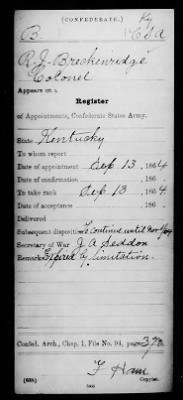 (CONFEDERATE.)
B. Ky CSA
R. J. Breckenridge
Colonel
Appears on a
Register
of Appointments, Confederate States Army.
State Kentucky
To whom report
Date of appointment Sep 13, 1864
Date of confirmation , 186
To take rank Sep 13 1864
Date of acceptance , 186
Delivered
Subsequent disposition To continue until
Secretary of War J. A. Seddon
Remarks Expired by limitation.
Confed. Arch., Chap. 1, File No. 94, page 370
F Ham
(638) Copyist.